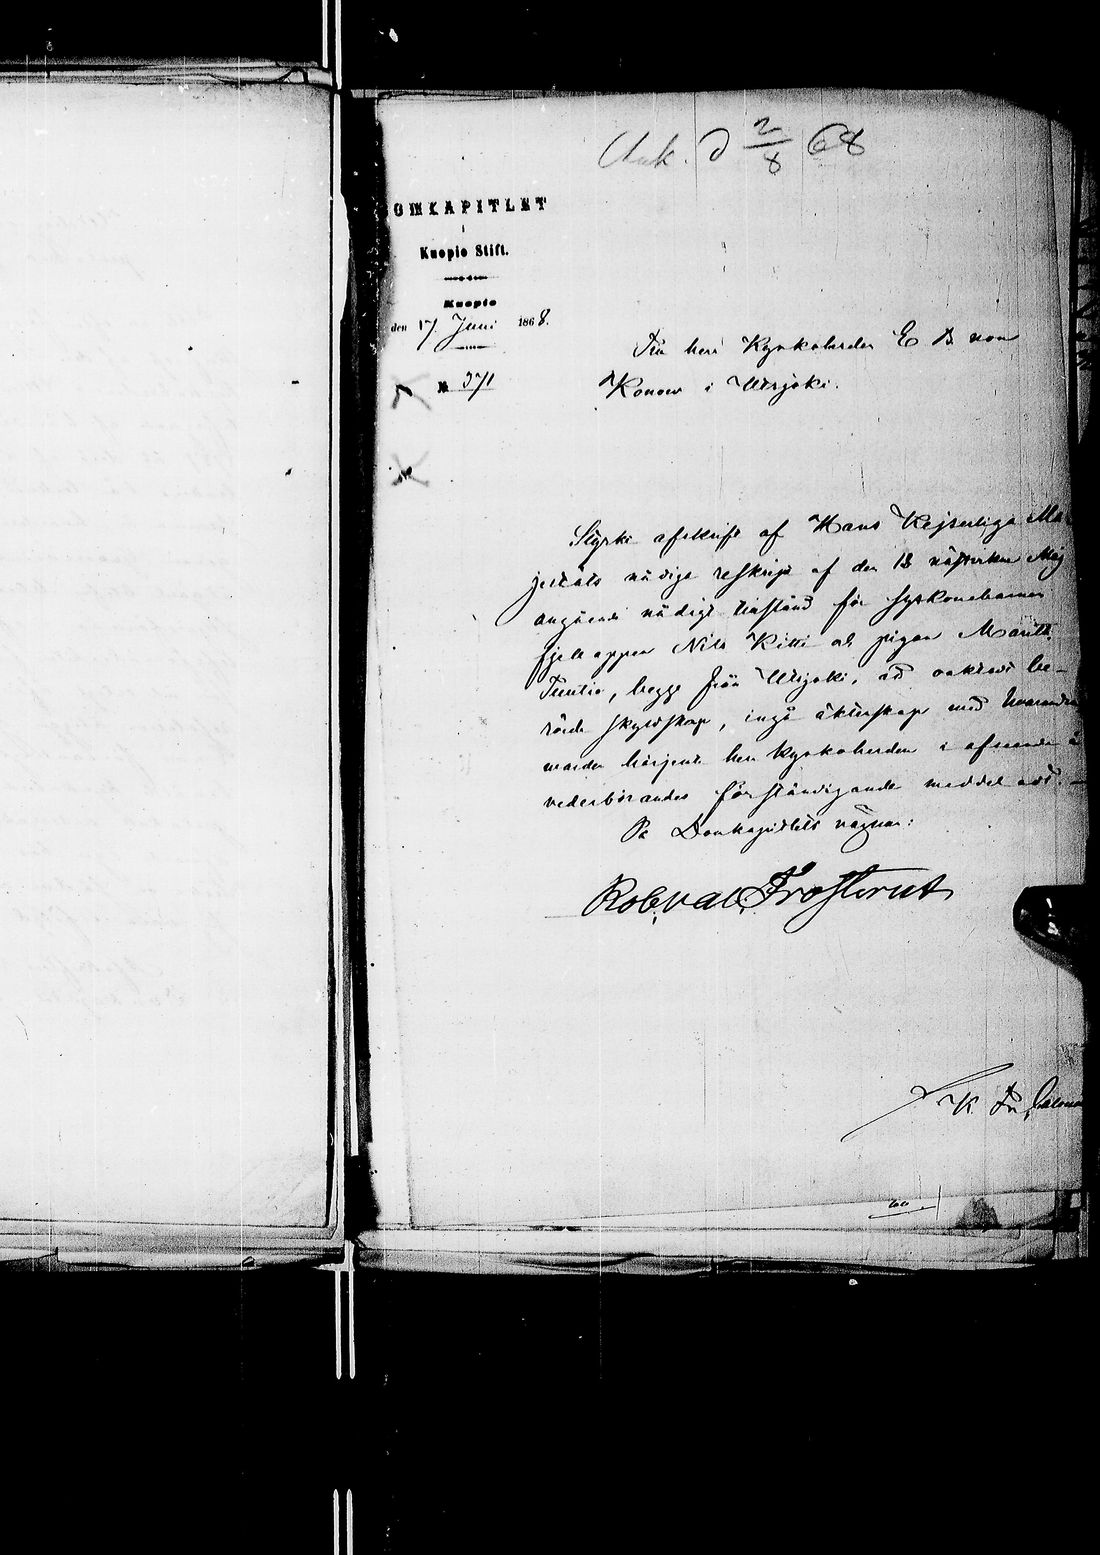 Ank. d 2/8 68
OMKAPITLET
i
Kuopio Stift.
Kuopio
den 17 Juni 1868.
№ 371
Till herr Kyrkoherden E B von
Konow i Utsjoki.
Styrkt afskrift af Hans Kejserliga Ma-
jestäts nådiga reskript af den 13 nästvikne Maj
angående nådigt tillstånd för syskonebarnen
fjellappen Nils Kitti och pigan Marith
, begge från Utsjoki, att oaktadt be-
rörde skyldskap, ingå äkterskap med hvarandra
warder härjemte herr Kyrkoherden i afseende å
vederbörandes förständigande meddeladt.
På Domkapitlets vägnar:
Robert Val. Frosterus